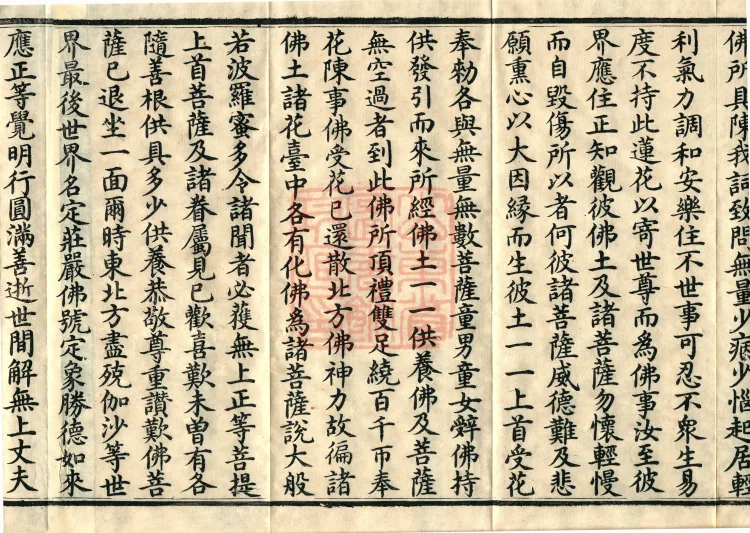 佛所具陳我詞致問無量少病少惱起居輕
利氣力調和安樂住不世事可忍不衆生易
度不持此蓮花以寄世尊而為佛事汝至彼
界應住正知觀彼佛土及諸菩薩勿懷輕慢
而自毀傷所以者何彼諸菩薩威德難及悲
願熏心以大因緣而生彼土一一上首受花
奉勑各與無量無數菩薩童男童女辤佛持
供發引而來所經佛土一一供養佛及菩薩
無空過者到此佛所頂禮雙足繞百千帀奉
花陳事佛受花已還散北方佛神力故徧諸
佛土諸花臺中各有化佛為諸菩薩說大般
若波羅蜜多令諸聞者必獲無上正等菩提
上首菩薩及諸眷屬見已歡喜歎未曾有各
隨善根供具多少供養恭敬尊重讚歎佛菩
薩已退坐一面爾時東北方盡殑伽沙等世
界最後世界名定莊嚴佛號定象勝德如來
應正等覺明行圓滿善逝世間解無上丈夫